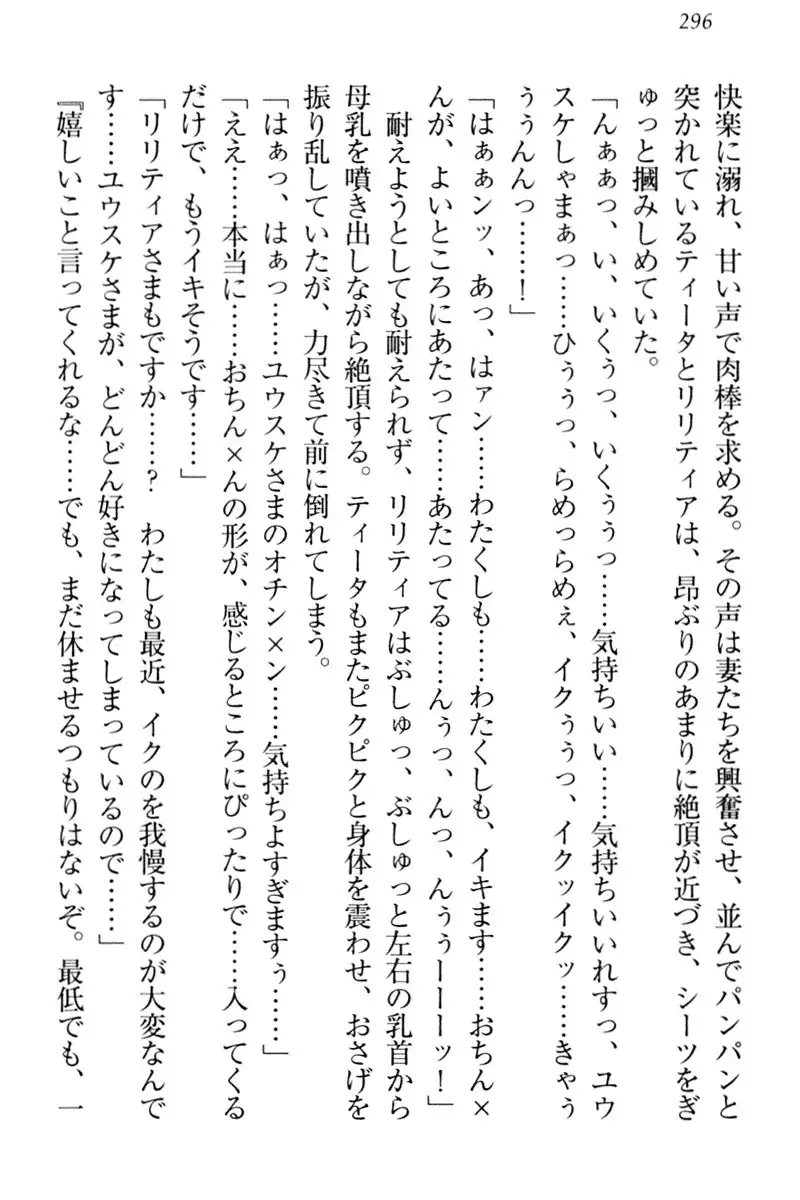 296
快楽に溺れ、甘い声で肉棒を求める。その声は妻たちを興奮させ、並んでパンパンと
突かれているティータとリリティアは、昂ぶりのあまりに絶頂が近づき、シーツをぎ
ゅっと摑みしめていた。
「んぁぁっ、い、いくぅっ、いくぅぅっ……気持ちいい……気持ちいいれすっ、ユウ
スケしゃまぁっ……ひぅぅっ、らめっらめぇ、イクぅぅっ、イクッイクッ……きゃぅ
ぅぅんんっ……！」
「はぁぁンッ、あっ、はァン……わたくしも……わたくしも、イキます……おちん×
んが、よいところにあたって……あたってる……んぅっ、んっ、んぅぅーーーッ！」
耐えようとしても耐えられず、リリティアはぶしゅっ、ぶしゅっと左右の乳首から
母乳を噴き出しながら絶頂する。ティータもまたピクピクと身体を震わせ、おさげを
振り乱していたが、力尽きて前に倒れてしまう。
「はぁっ、はぁっ……ユウスケさまのオチン×ン……気持ちよすぎますぅ……」
「ええ……本当に……おちん×んの形が、感じるところにぴったりで……入ってくる
だけで、もうイキそうです……」
「リリティアさまもですか……？　わたしも最近、イクのを我慢するのが大変なんで
す……ユウスケさまが、どんどん好きになってしまっているので……」
『嬉しいこと言ってくれるな……でも、まだ休ませるつもりはないぞ。最低でも、一